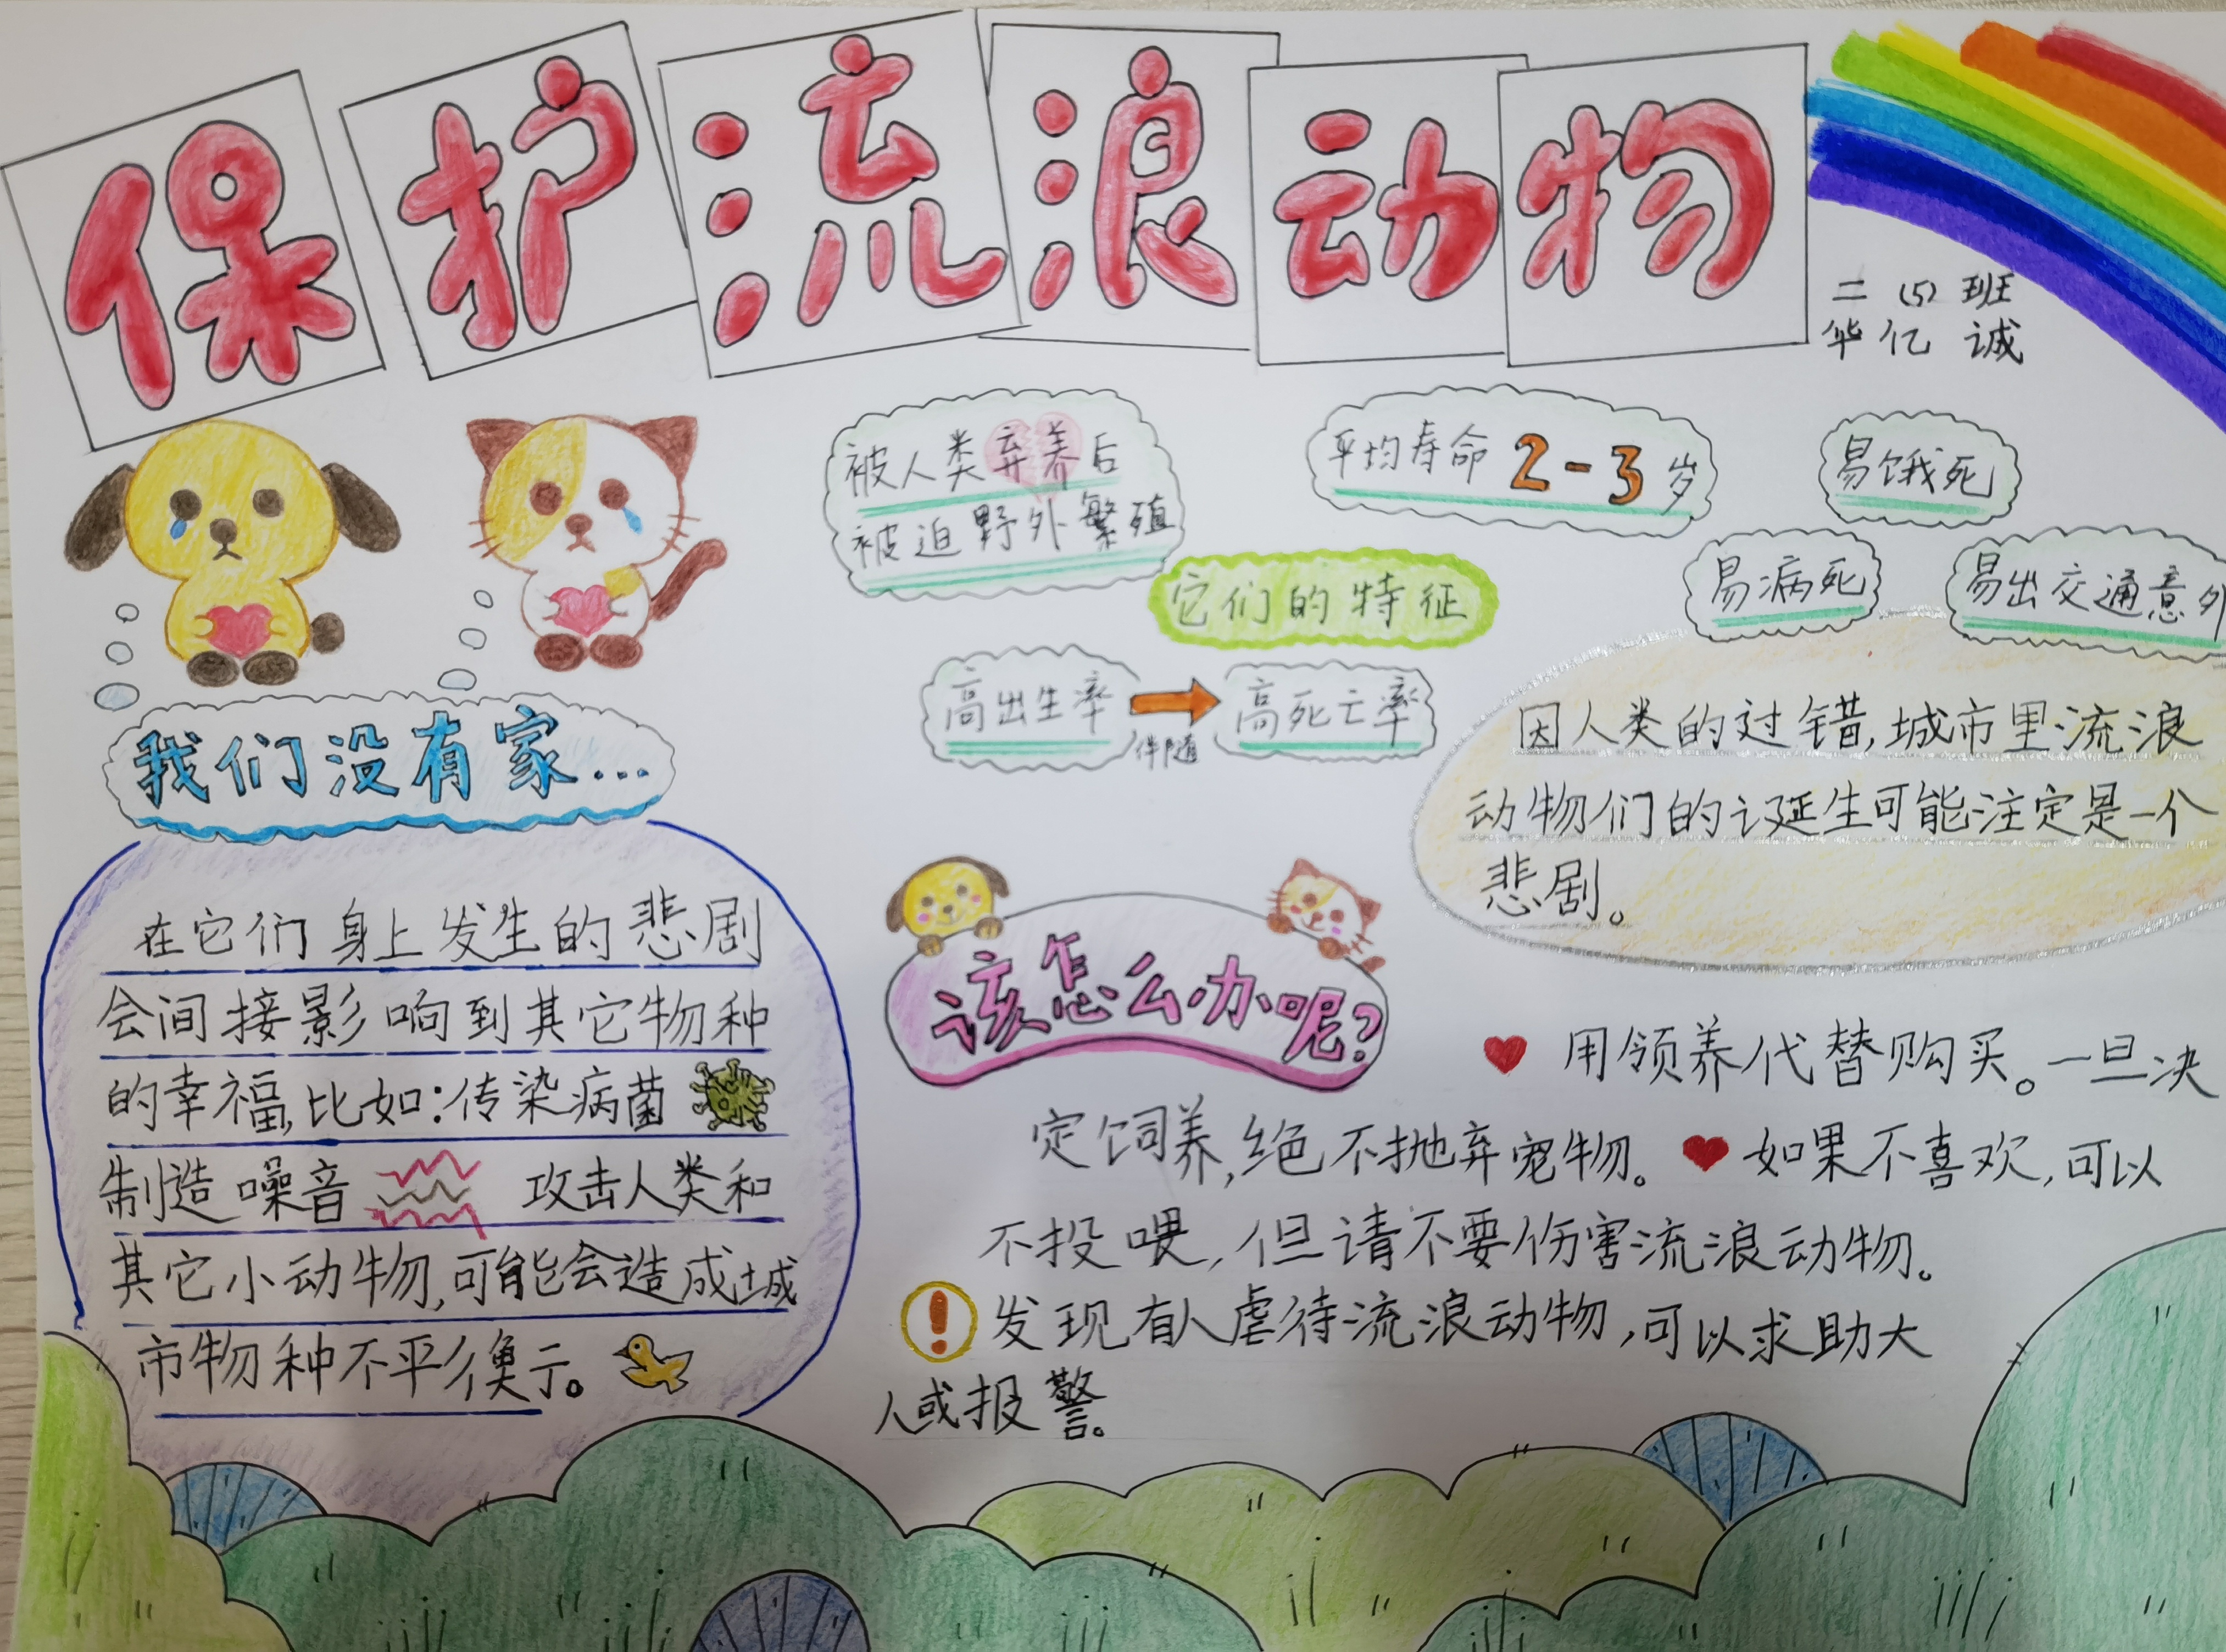 保护流浪动物
二（5）班
华亿诚
被人类弃养后
被迫野外繁殖
平均寿命2-3岁
易饿死
易病死
易出交通意外
它们的特征
高出生率
伴随
高死亡率
我们没有家...
因人类的过错,城市里流浪
动物们的诞生可能注定是一个
悲剧。
在它们身上发生的悲剧
会间接影响到其它物种
的幸福,比如:传染病菌
制造噪音 攻击人类和
其它小动物,可能会造成城
市物种不平衡。
该怎么办呢?
用领养代替购买。一旦决
定饲养,绝不抛弃宠物。 如果不喜欢,可以
不投喂,但请不要伤害流浪动物。
发现有人虐待流浪动物,可以求助大
人或报警。